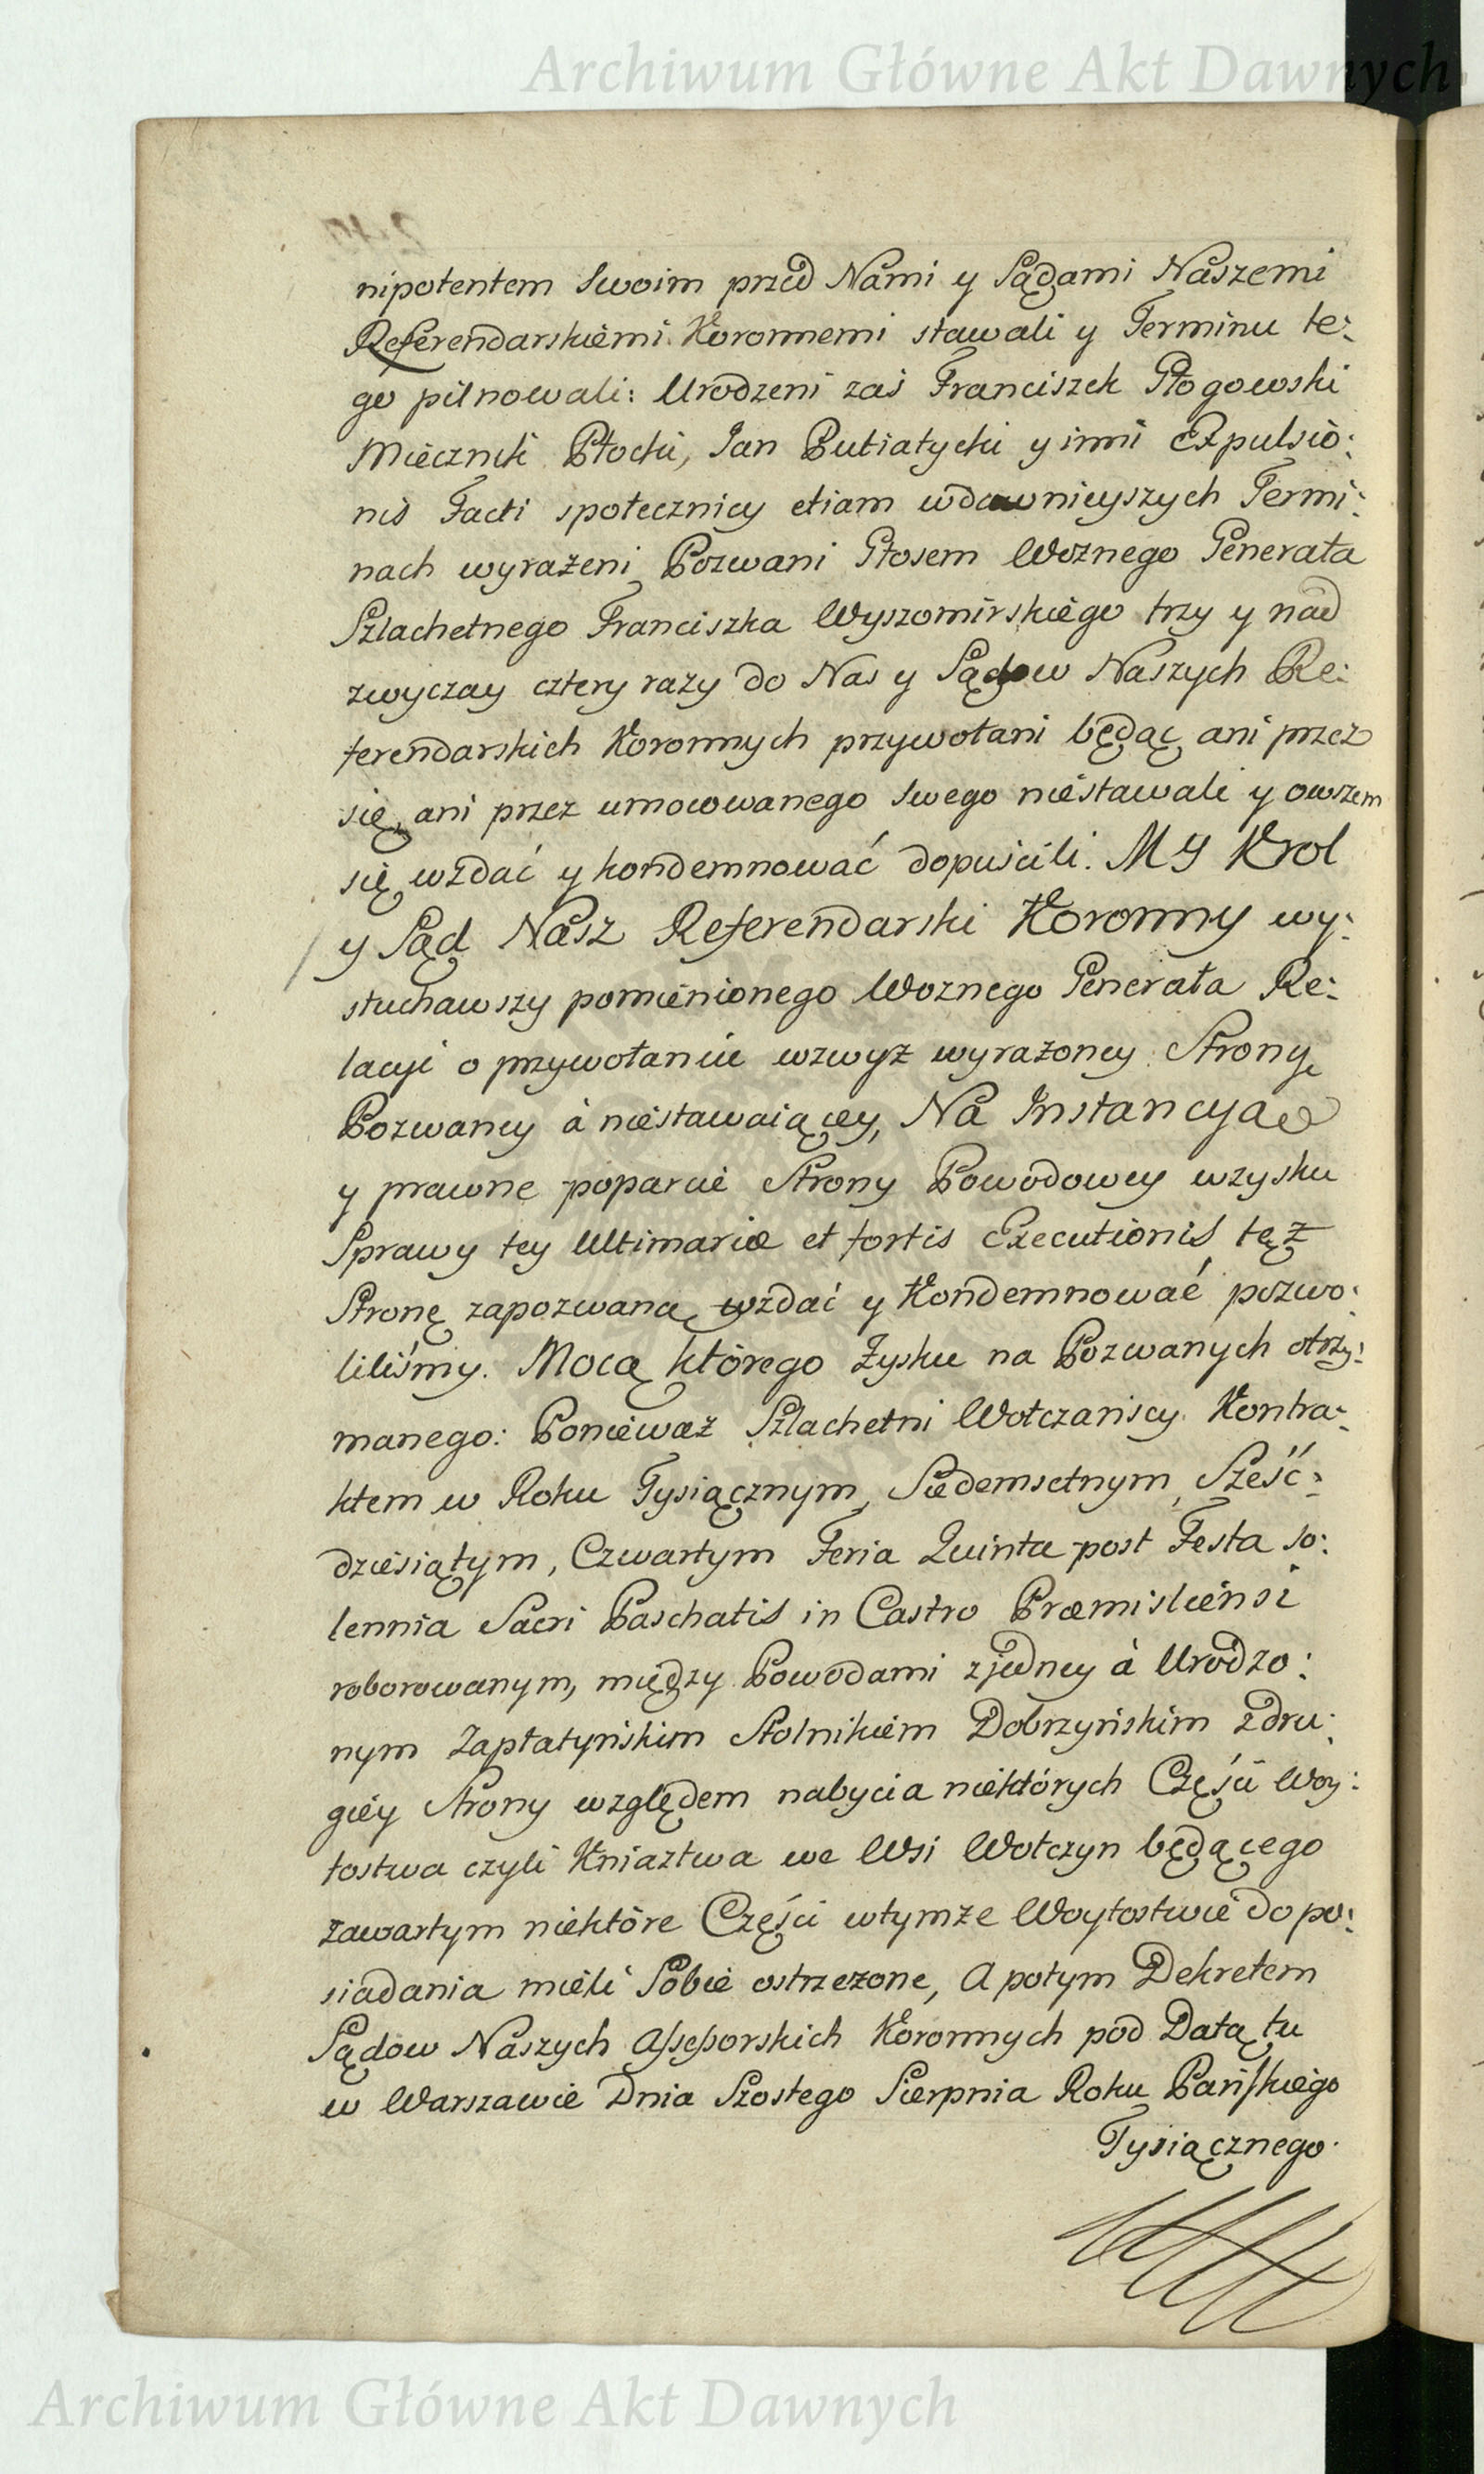 Archiwum Główne Akt Dawnych
nipotentem Swoim przed Nami y Sądami Naszemi
Referendarskiemi Koronnemi stawali y Terminu te:
go pilnowali: Urodzeni zaś Franciszek Głogowski
Miecznik Płocki, Jan Putiatycki y inni Expulsio:
nis Facti społecznicy etiam wdawnieyszych Termi:
nach wyrażeni Pozwani Głosem Woźnego Generała
Szlachetnego Franciszka Wyszomirskiego trzy y nad
zwyczay cztery razy do Nas y Sądow Naszych Re:
ferendarskich Koronnych przywołani będąc ani przez
się, ani przez umocowanego Swego niestawali y owszem
się wzdać y kondemnować dopuścili. MY Krol
y Sąd Nasz Referendarski Koronny wy:
słuchawszy pomienionego Woznego Generała Re:
lacyi o przywołaniu wzwyż wyrażoney Strony
Pozwaney à niestawaiącey, Na Instancyą
y prawne poparcie Strony Powodowey wzysku
Sprawy tey Ultimariæ et fortis Executionis tęż
Stronę zapozwaną wzdać y Kondemnować pozwo:
liliśmy. Mocą którego Zysku na Pozwanych otrzy:
manego: Ponieważ Szlachetni Wołczańscy Kontra:
ktem w Roku Tysiącznym, Siedemsetnym, Sześć:
dziesiątym, Czwartym Feria Quinta post Festa so:
lennia Sacri Paschatis in Castro Præmisliensi
roborowanym, między Powodami zjedney à Urodzo:
nym Zapłatyńskim Stolnikiem Dobrzyńskim zdru:
giey Strony względem nabycia niektórych Części Woy:
tostwa czyli Kniaztwa we Wsi Wołczyn będącego
zawartym niektóre Części wtymże Woytostwie do po:
siadania mieli Sobie ostrzeżone, A potym Dekretem
Sądow Naszych Assessorskich Koronnych pod Datą tu
w Warszawie Dnia Szostego Sierpnia Roku Pańskiego
Tysiącznego
Archiwum Główne Akt Dawnych